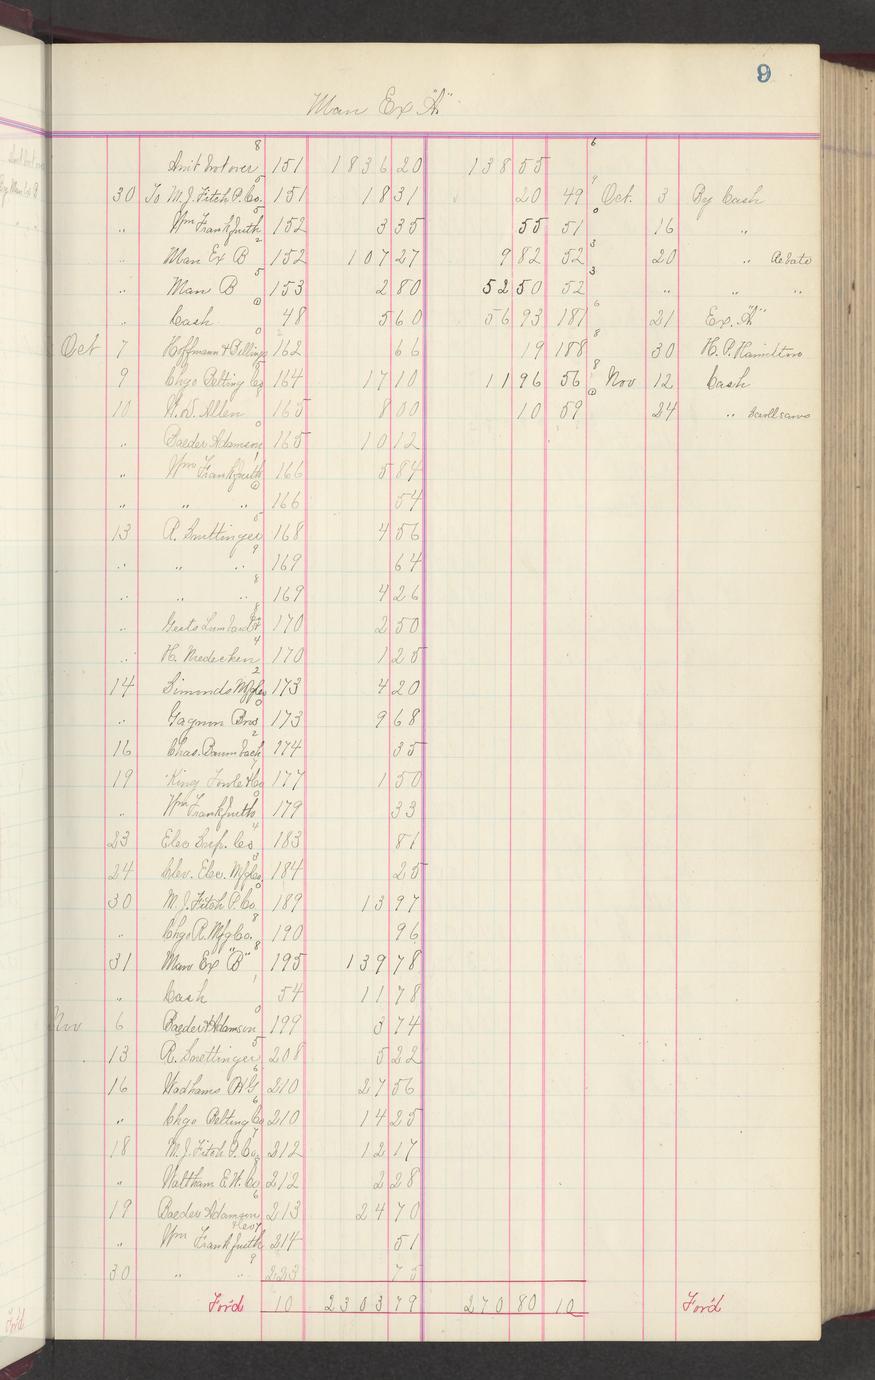 9
Man Ex "A"
8 6
Amt brot over 151 1836 20 138 55
30 To M. J. Fitch P. Co. 151 18 31 20 49 Oct. 3 By Cash
" Wm Frankfurth 152 3 35 55 51 16 "
" Man Ex B 152 107 27 9 82 52 20 " Rebate
" Man B 153 2 80 52 50 52 " " "
" Cash 48 5 60 56 93 187 21 Ex. "A"
Oct 7 Hoffmann & Billings 162 66 19 188 30 H. P. Hamilton
9 Chgo Belting Co 164 17 10 11 96 56 Nov 12 Cash
10 W. W. Allen 165 8 00 10 59 24 "
" Baeder Adamson 165 10 12
" Wm Frankfurth 166 5 84
" " " 166 54
13 R. Suettinger 168 4 56
" " " 169 64
" " " 169 4 26
" 170 2 50
" H. Niedecken 170 1 25
14 Simonds Mfg Co 173 4 20
" Gagnon Bros 173 9 68
16 Chas. Baumbach 174 35
19 King Fowle & Co 177 1 50
" Wm Frankfurth 179 33
23 Elec Sup. Co 183 81
24 Clev. Elec. Mfg Co 184 25
30 M. J. Fitch P. Co 189 13 97
" Chgo R. Mfg Co. 190 96
31 Man Ex "B" 195 139 78
" Cash 54 11 78
Nov 6 Baeder & Adamson 199 3 74
13 R. Suettinger 208 5 22
16 Wadhams O & G 210 27 56
" Chgo Belting Co 210 14 25
18 M. J. Fitch P. Co. 212 12 17
" Waltham E. W. Co 212 2 28
19 Baeder Adamson & Co 213 24 70
" Wm Frankfurth 214 51
30 " " 223 75
For'd 10 2303 79 270 80 10 For'd